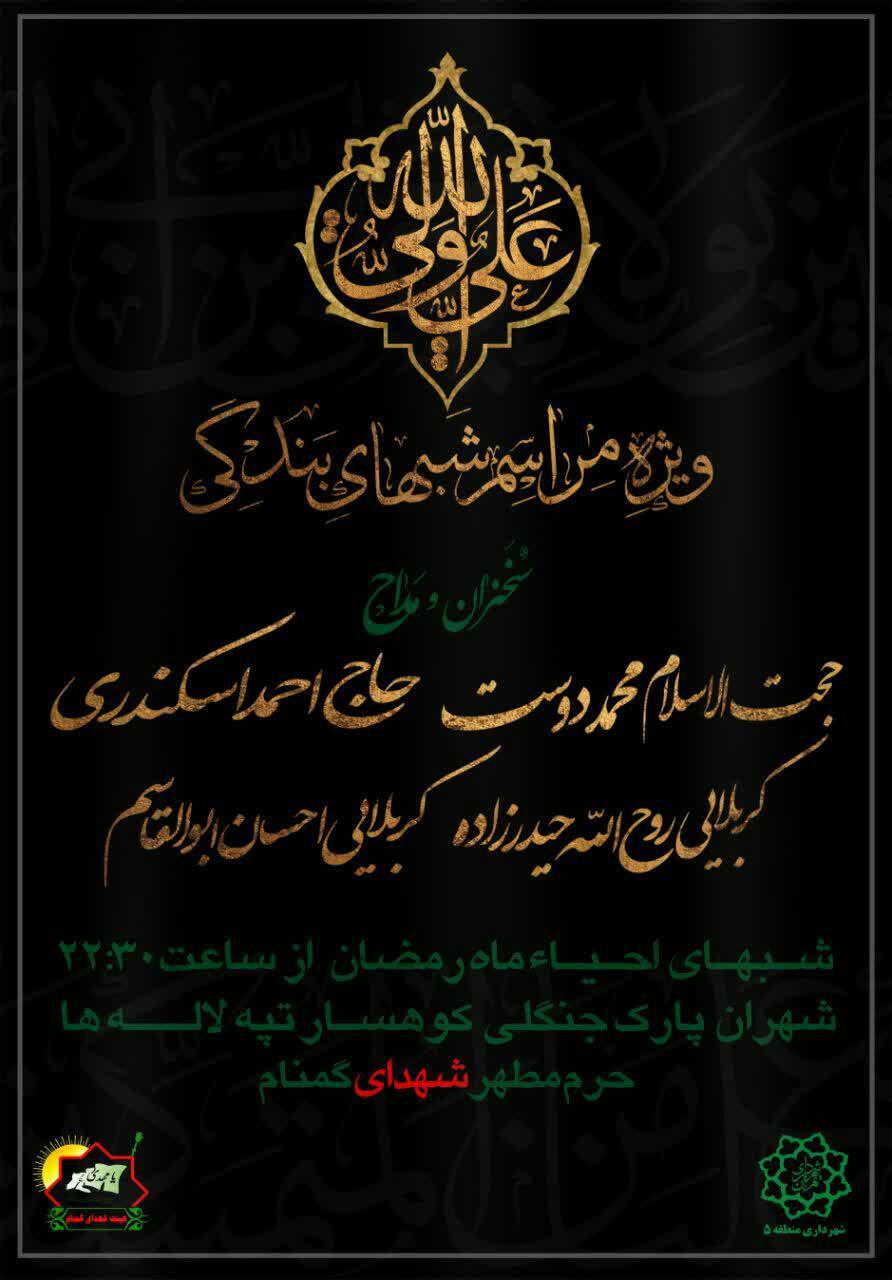 علی ولی الله
ویژه مراسم شبهای بندگی
سخنران و مداح
حجت الاسلام محمد دوست حاج احمد اسکندری
کربلایی روح الله حیدرزاده کربلایی احسان ابوالقاسم
شبهای احیاء ماه رمضان از ساعت ۲۲:۳۰
شهران پارک جنگلی کوهسار تپه لاله ها
حرم مطهر شهدای گمنام
هیئت شهدای گمنام
شهرداری تهران
شهرداری منطقه ۵